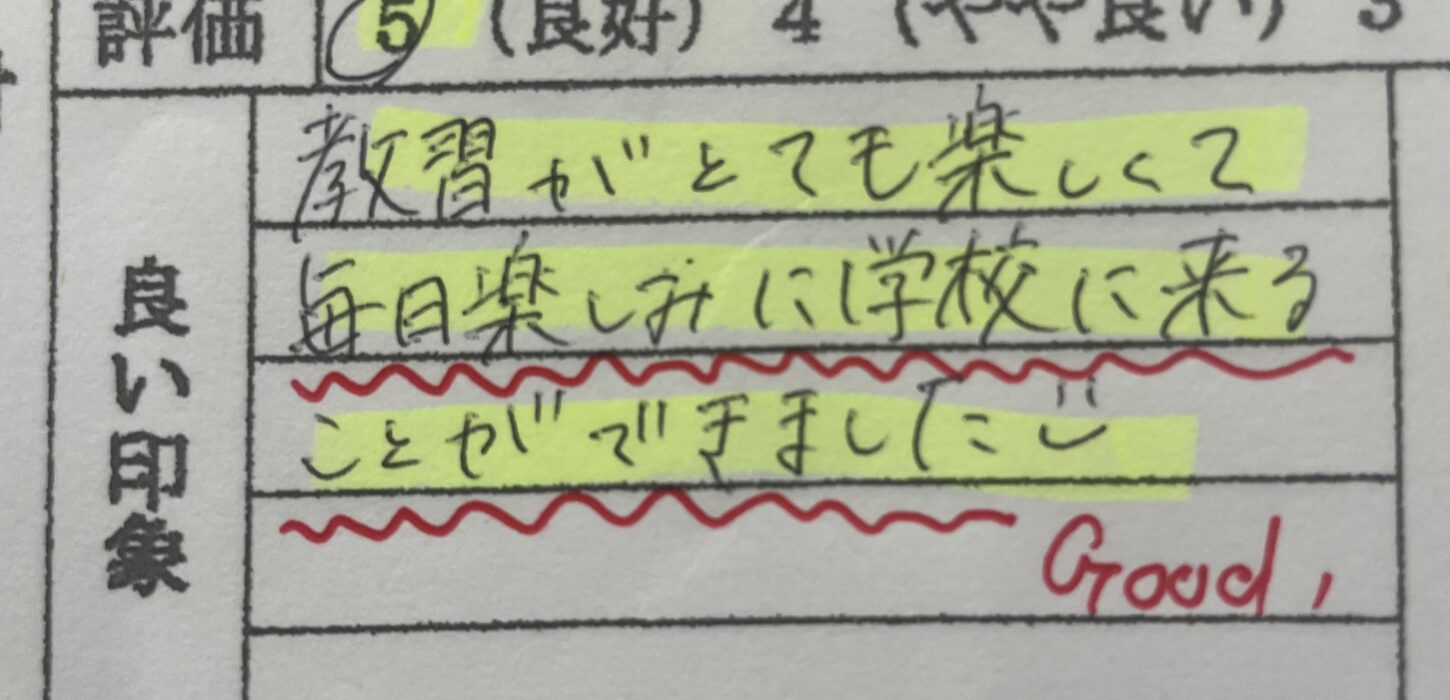 評価 5 (良好) 4 (やや良い) 3
良い印象
教習がとても楽しくて
毎日楽しみに学校に来る
ことができました
Good,